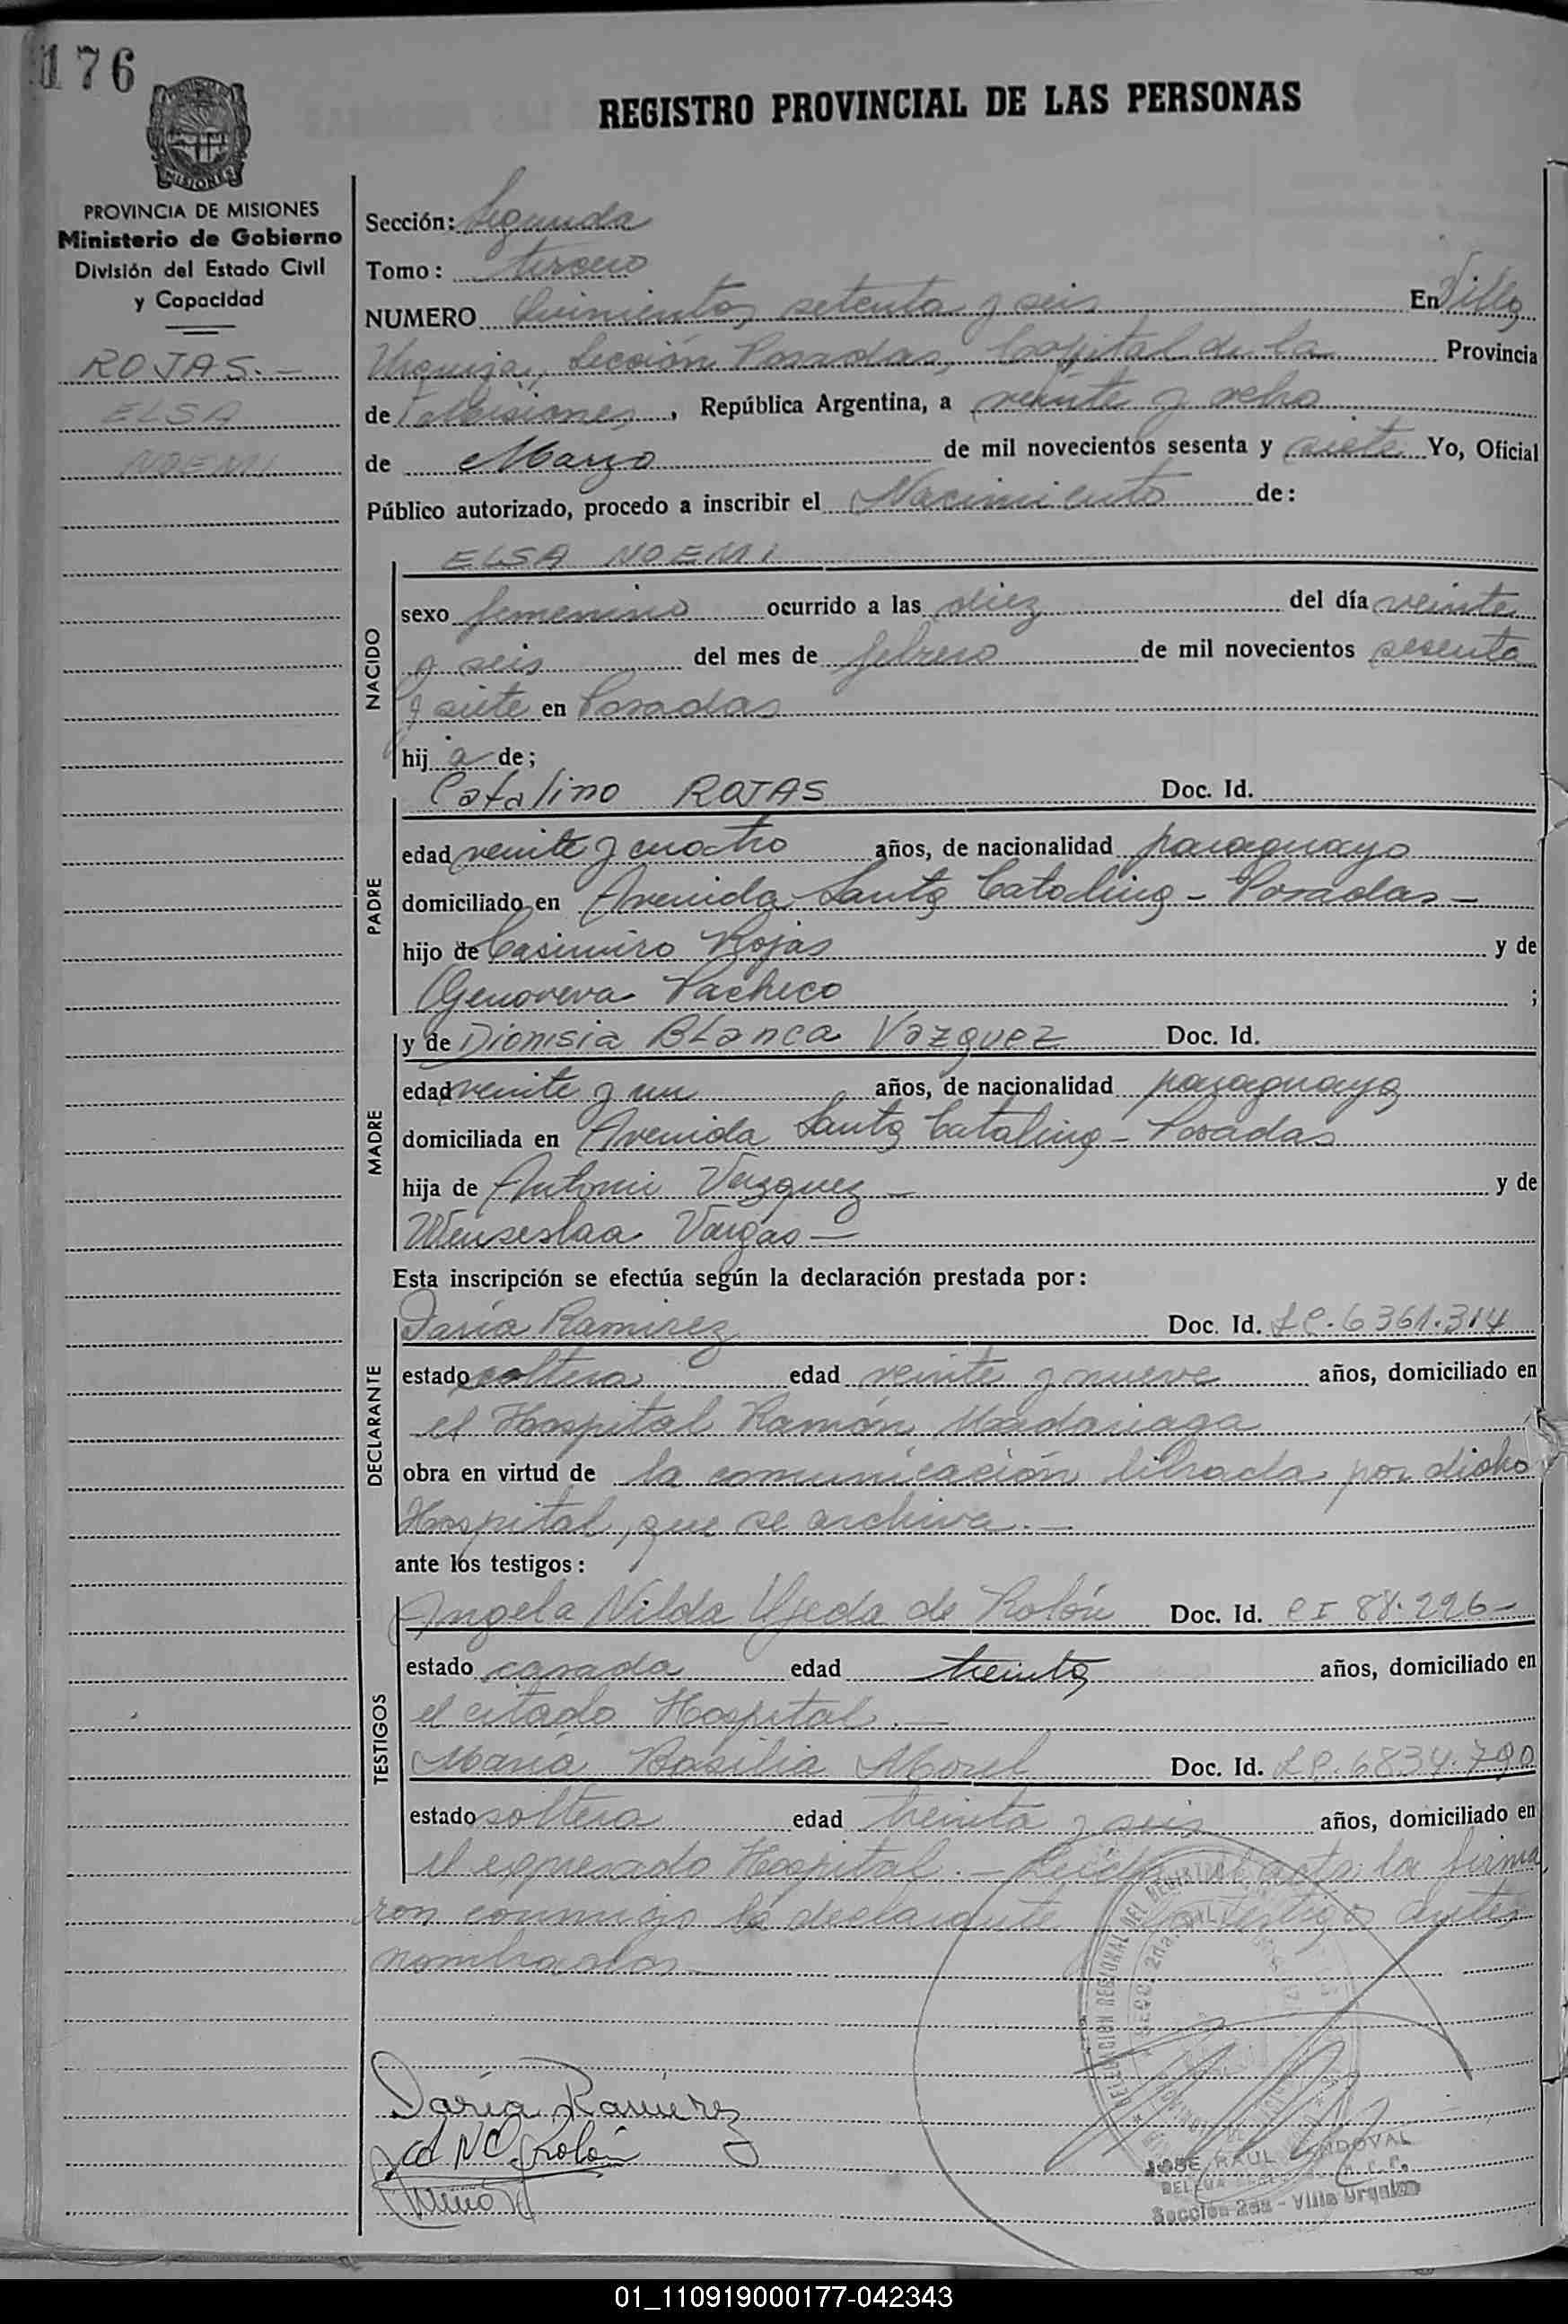 176
REGISTRO PROVINCIAL DE LAS PERSONAS
MISIONES
PROVINCIA DE MISIONES
Ministerio de Gobierno
División del Estado Civil
y Capacidad
ROJAS.-
ELSA
NOEMI
Sección: Segunda
Tomo: tercero
NUMERO Quinientos setenta y seis En Villa
Urquiza, Sección Posadas, Capital de la Provincia
de Misiones, República Argentina, a veinte y ocho
de Marzo de mil novecientos sesenta y siete Yo, Oficial
Público autorizado, procedo a inscribir el Nacimiento de:
NACIDO
ELSA NOEMI
sexo femenino ocurrido a las diez del día veinte
y seis del mes de febrero de mil novecientos sesenta
y siete en Posadas
hij a de;
PADRE
Catalino ROJAS Doc. Id.
edad veinte y cuatro años, de nacionalidad paraguayo
domiciliado en Avenida Santa Catalina - Posadas -
hijo de Casimiro Rojas y de
Genoveva Pacheco ;
MADRE
y de Dionisia BLanca Vazquez Doc. Id.
edad veinte y un años, de nacionalidad paraguaya
domiciliada en Avenida Santa Catalina - Posadas
hija de Vazquez - y de
Wenseslaa Vargas -
Esta inscripción se efectúa según la declaración prestada por:
DECLARANTE
Daría Ramirez Doc. Id. LC. 6361.314
estado soltera edad veinte y nueve años, domiciliado en
el Hospital Ramón Madariaga
obra en virtud de la comunicación librada por dicho
Hospital, que se archiva.-
ante los testigos:
TESTIGOS
Angela Nilda Ojeda de Rolón Doc. Id. CI 88.226-
estado casada edad treinta años, domiciliado en
el citado Hospital.-
María Basilia Morel Doc. Id. LC. 6834.790
estado soltera edad treinta y seis años, domiciliado en
el expresado Hospital.- Leída el acta la firma
ron conmigo la declarante testigos antes
nombrados
Daría Ramirez
Rolón
DELEGACION REGIONAL DEL REGISTRO
SECC. 2da.
JOSE RAUL SANDOVAL
Sección 2da - Villa Urquiza
01_110919000177-042343